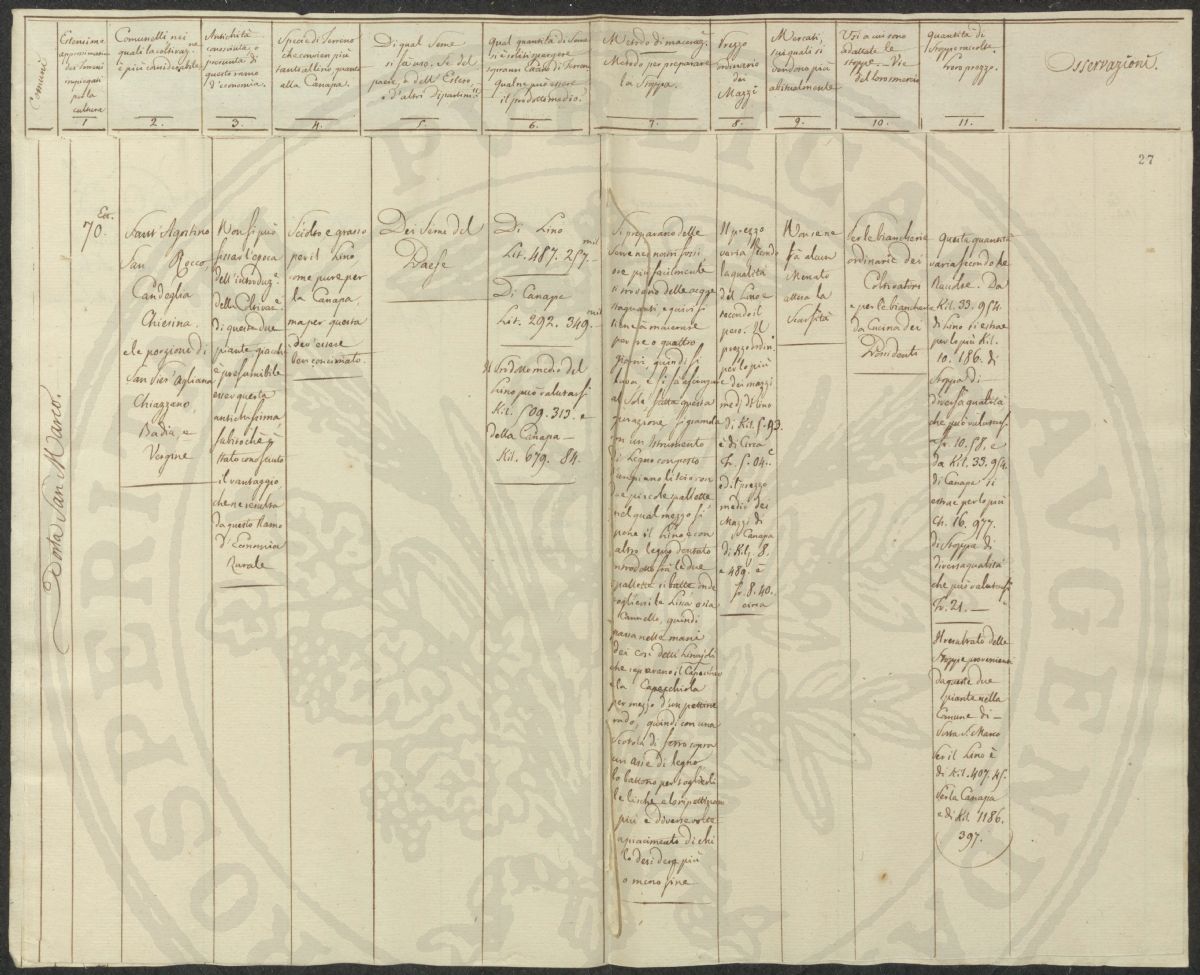 Comuni
Estensione
approssimativa
dei Terreni
impiegati
per la
cultura
1
Comunelli nei
quali la coltivaz.ne
è più considerabile
2.
Antichità
conosciuta, o
presunta di
questo ramo
d'economia.
3.
Specie di Terreno
che convien più
tanto al Lino, quanto
alla Canapa.
4.
Di qual Seme
si fa uso. Se del
paese, o dell'Estero,
o d'altri Dipartim.ti
5.
Qual quantità di Seme
si è soliti spargere
sopra un dato di Terreno
Qual ne può essere
il prodotto medio?
6.
Metodo di maceraz.
Metodo per preparare
la Stoppa.
7.
Prezzo
ordinario
dei
Mazzi
8.
Mercati,
sui quali si
vendono più
abitualmente
9.
Usi a cui sono
adattate le
stoppe. Vie
del loro smercio
10.
Quantità di
Stoppe raccolte.
Loro prezzo.
11.
Osservazioni.
27
Porta San Marco.
70. Ect.
Sant'Agostino
San Rocco,
Candeglia
Chiesina.
e le porzione di
San Pier' Agliana
Chiazzano,
Badia, e
Vergine
Non si può
fissar l'epoca
dell'introduz.e
della Coltivaz.e
di queste due
piante giacchè
è presumibile
esser questa
antichissima
subitochè è
stato conosciuto
il vantaggio,
che ne resulta
da questo Ramo
d'Economia
Rurale
Sciolto e grasso
per il Lino
come pure per
la Canapa,
ma per questa
dev'essere
ben concimato.
Del Seme del
Paese
Di Lino
Lit. 487. 257. mil
Di Canape
Lit. 292. 349. mil
Il Prodotto medio del
Lino può valutarsi
Kil. 509. 313. e
della Canapa
Kil. 679. 84.
Si preparano delle
Serre nei nostri fossi
ove più facilmente
si trovano delle acque
stagnanti e quivi si
tiene à macerare
per tre o quattro
giorni, quindi si
lava, e si fà asciugare
al Sole. fatta questa
operazione si gramola
con un Istrumento
di Legno composto
d'un piano liscio con
due piccole pallette
nel qual mezzo si
pone il Lino e con
altro legno dentato
introdotto frà le due
pallette si batte onde
togliersi la Lisca o sia
Cannello, quindi
passa nelle mani
dei così detti Linajoli
che separano il Capecchio
e la Capecchiola
per mezzo d'un pettine
rado, quindi con una
Scotola di ferro sopra
un asse di legno
lo battono per togliersi
le lische e lo ripettinano
più e diverse volte
a piacimento di chi
lo desidera più
o meno fine
Il prezzo
varia secondo
la qualità
del Lino e
secondo il
peso. Il
prezzo ordin.o
per lo più
è dei mazzi
medj di lino
di Kil. 5.93.
è di Circa
Fr. 5. 04. c
ed il prezzo
medio dei
Mazzi di
Canapa
di Kil. 8.
e 489. è
fr. 8. 40.
circa
Non se ne
fà alcun
Mercato
attesa la
Scarsità
Per le biancherie
ordinarie dei
Coltivatori
e per le biancherie
da Cucina dei
Possidenti
Questa quantità
varia secondo le
Raccolte. Da
Kil. 33. 954.
di Lino si estrae
per lo più Kil.
10. 186. di
Stoppa di
diversa qualità
che può valutarsi
Fr. 10. 58. e
da Kil. 33. 954.
di Canape si
estrae per lo più
Ch. 16. 977.
di Stoppa di
diversa qualità
che può valutarsi
Fr. 21. —
Il resultato delle
Stoppe provenienti
da queste due
piante nella
Comune di
Porta S. Marco
per il Lino è
di Kil. 407. 45.
Per la Canapa
è di Kil. 1186.
397.